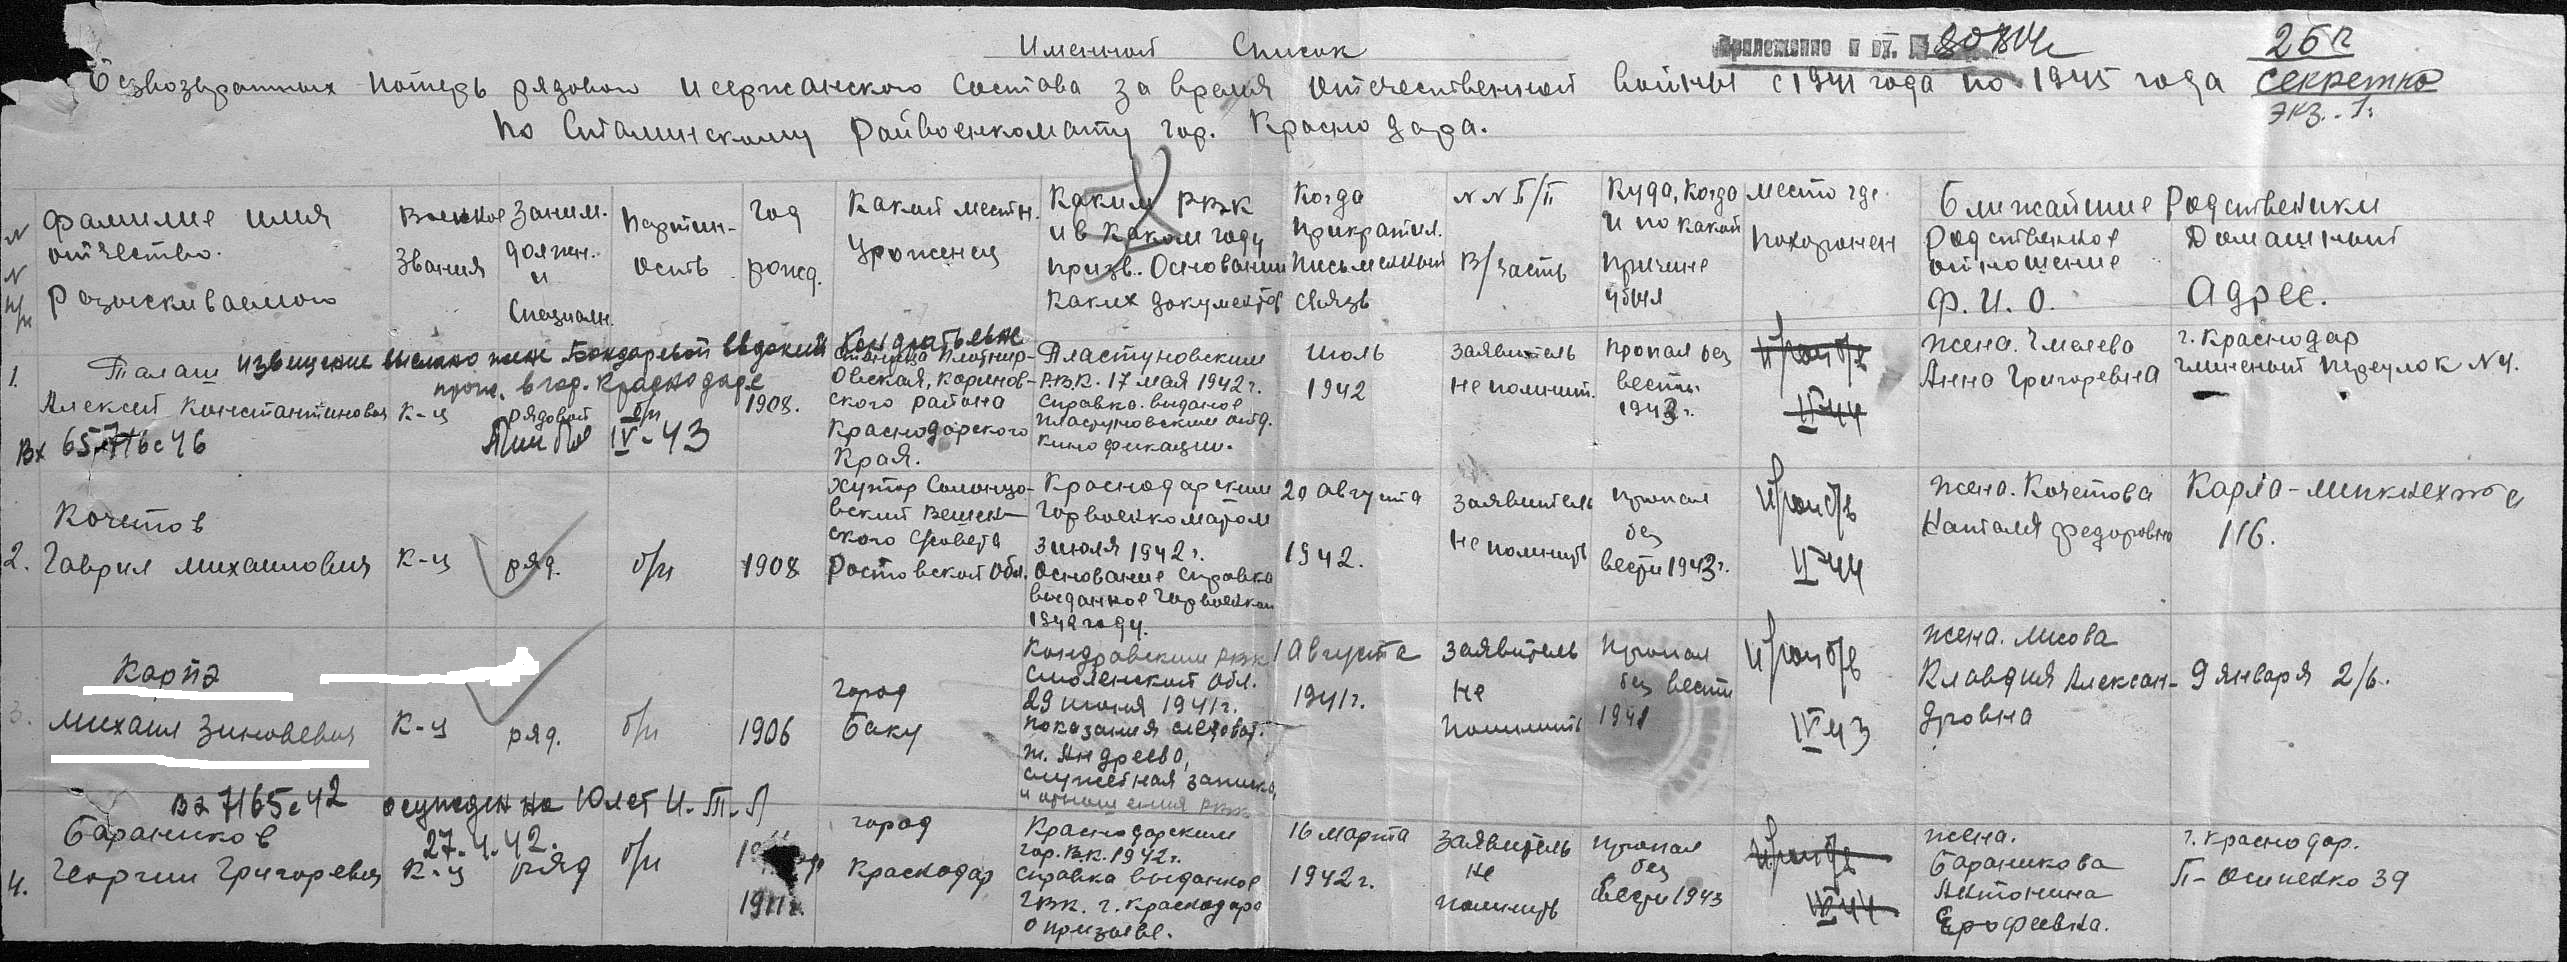 Именной Список
Приложение к вх. № 80804с
26 п
Безвозвратных потерь рядового и сержанского состава за время отечественной войны с 1941 года по 1945 года
Секретно
экз. 1.
По Сталинскому Райвоенкомату гор. Краснодара.
N N п/п
Фамилие имя отчество. Разыскиваемого
Воинское звания
Заним. должн. и специальн.
Партий-ость
Год рожд.
Какой местн. уроженец
Каким РВК и в каком году призв. Основании каких документов
Когда прикратил. письменной связь
N N П/П В/часть
Куда, когда и по какой причине убыл
Место где похоронен
Ближайшие Родственики
Родственное отношение Ф. И. О.
Домашный Адрес.
извещение выслано жене Бондаревой Евдокии Кондратьевне
прож. в гор. Краснодаре
1.
Талаш
Алексей Константинович
к-ц
рядовой
б/п
1908.
станица Платнир-
овская, Коринов-
ского района
Краснодарского
Края.
Пластуновским
Р.В.К. 17 мая 1942 г.
справка. выданое
Пластуновским отд.
кинофикации.
июль
1942
заявитель
не помнит.
пропал без
вести
1943 г.
II-44
жена. Чмелева
Анна Григоревна
г. Краснодар
Глиненый переулок N 4.
Вх
IV-43
2.
Кочетов
Гаврил Михаилович
к-ц
ряд.
б/п
1908
Хутор Солонцо-
вский Вешен-
ского с/совета
Ростовской обл.
Краснодарским
Горвоенкоматом
3 июля 1942 г.
Основание справка
выданное Горвоенком
1942 году.
20 августа
1942.
заявитель
не помнить
пропал
без
вести 1943 г.
II-44
жена. Кочетова
Наталя Федоровна
Карла-Липкнехта
116.
3.
Карпэ
Михаил Зиновевич
к-ц
ряд.
б/п
1906
город
Баку
Кондровским РВК
Смоленской обл.
29 июня 1941 г.
показания следоват.
т. Андреева,
служебная записка,
и отношения РВК
1 Августа
1941 г.
заявитель
не
помнить
пропал
без вести
1941
IV 43
жена. Лисова
Клавдия Алексан-
дровна
9 января 2/б.
Вх 7165с42 осужден на 10 лет И-Т-Л
27.4.42.
4.
Бараников
Георгии Григоревич
к-ц
ряд
б/п
1911 г.
город
Краснодар
Краснодарским
гор. В.К. 1942 г.
справка выданное
ГВК. г. Краснодара
о призыве.
16 марта
1942 г.
заявитель
не
помнить
пропал
без
вести 1943
жена.
Бараникова
Антонина
Ерофеевна.
г. Краснодар.
П-Осипенко 39